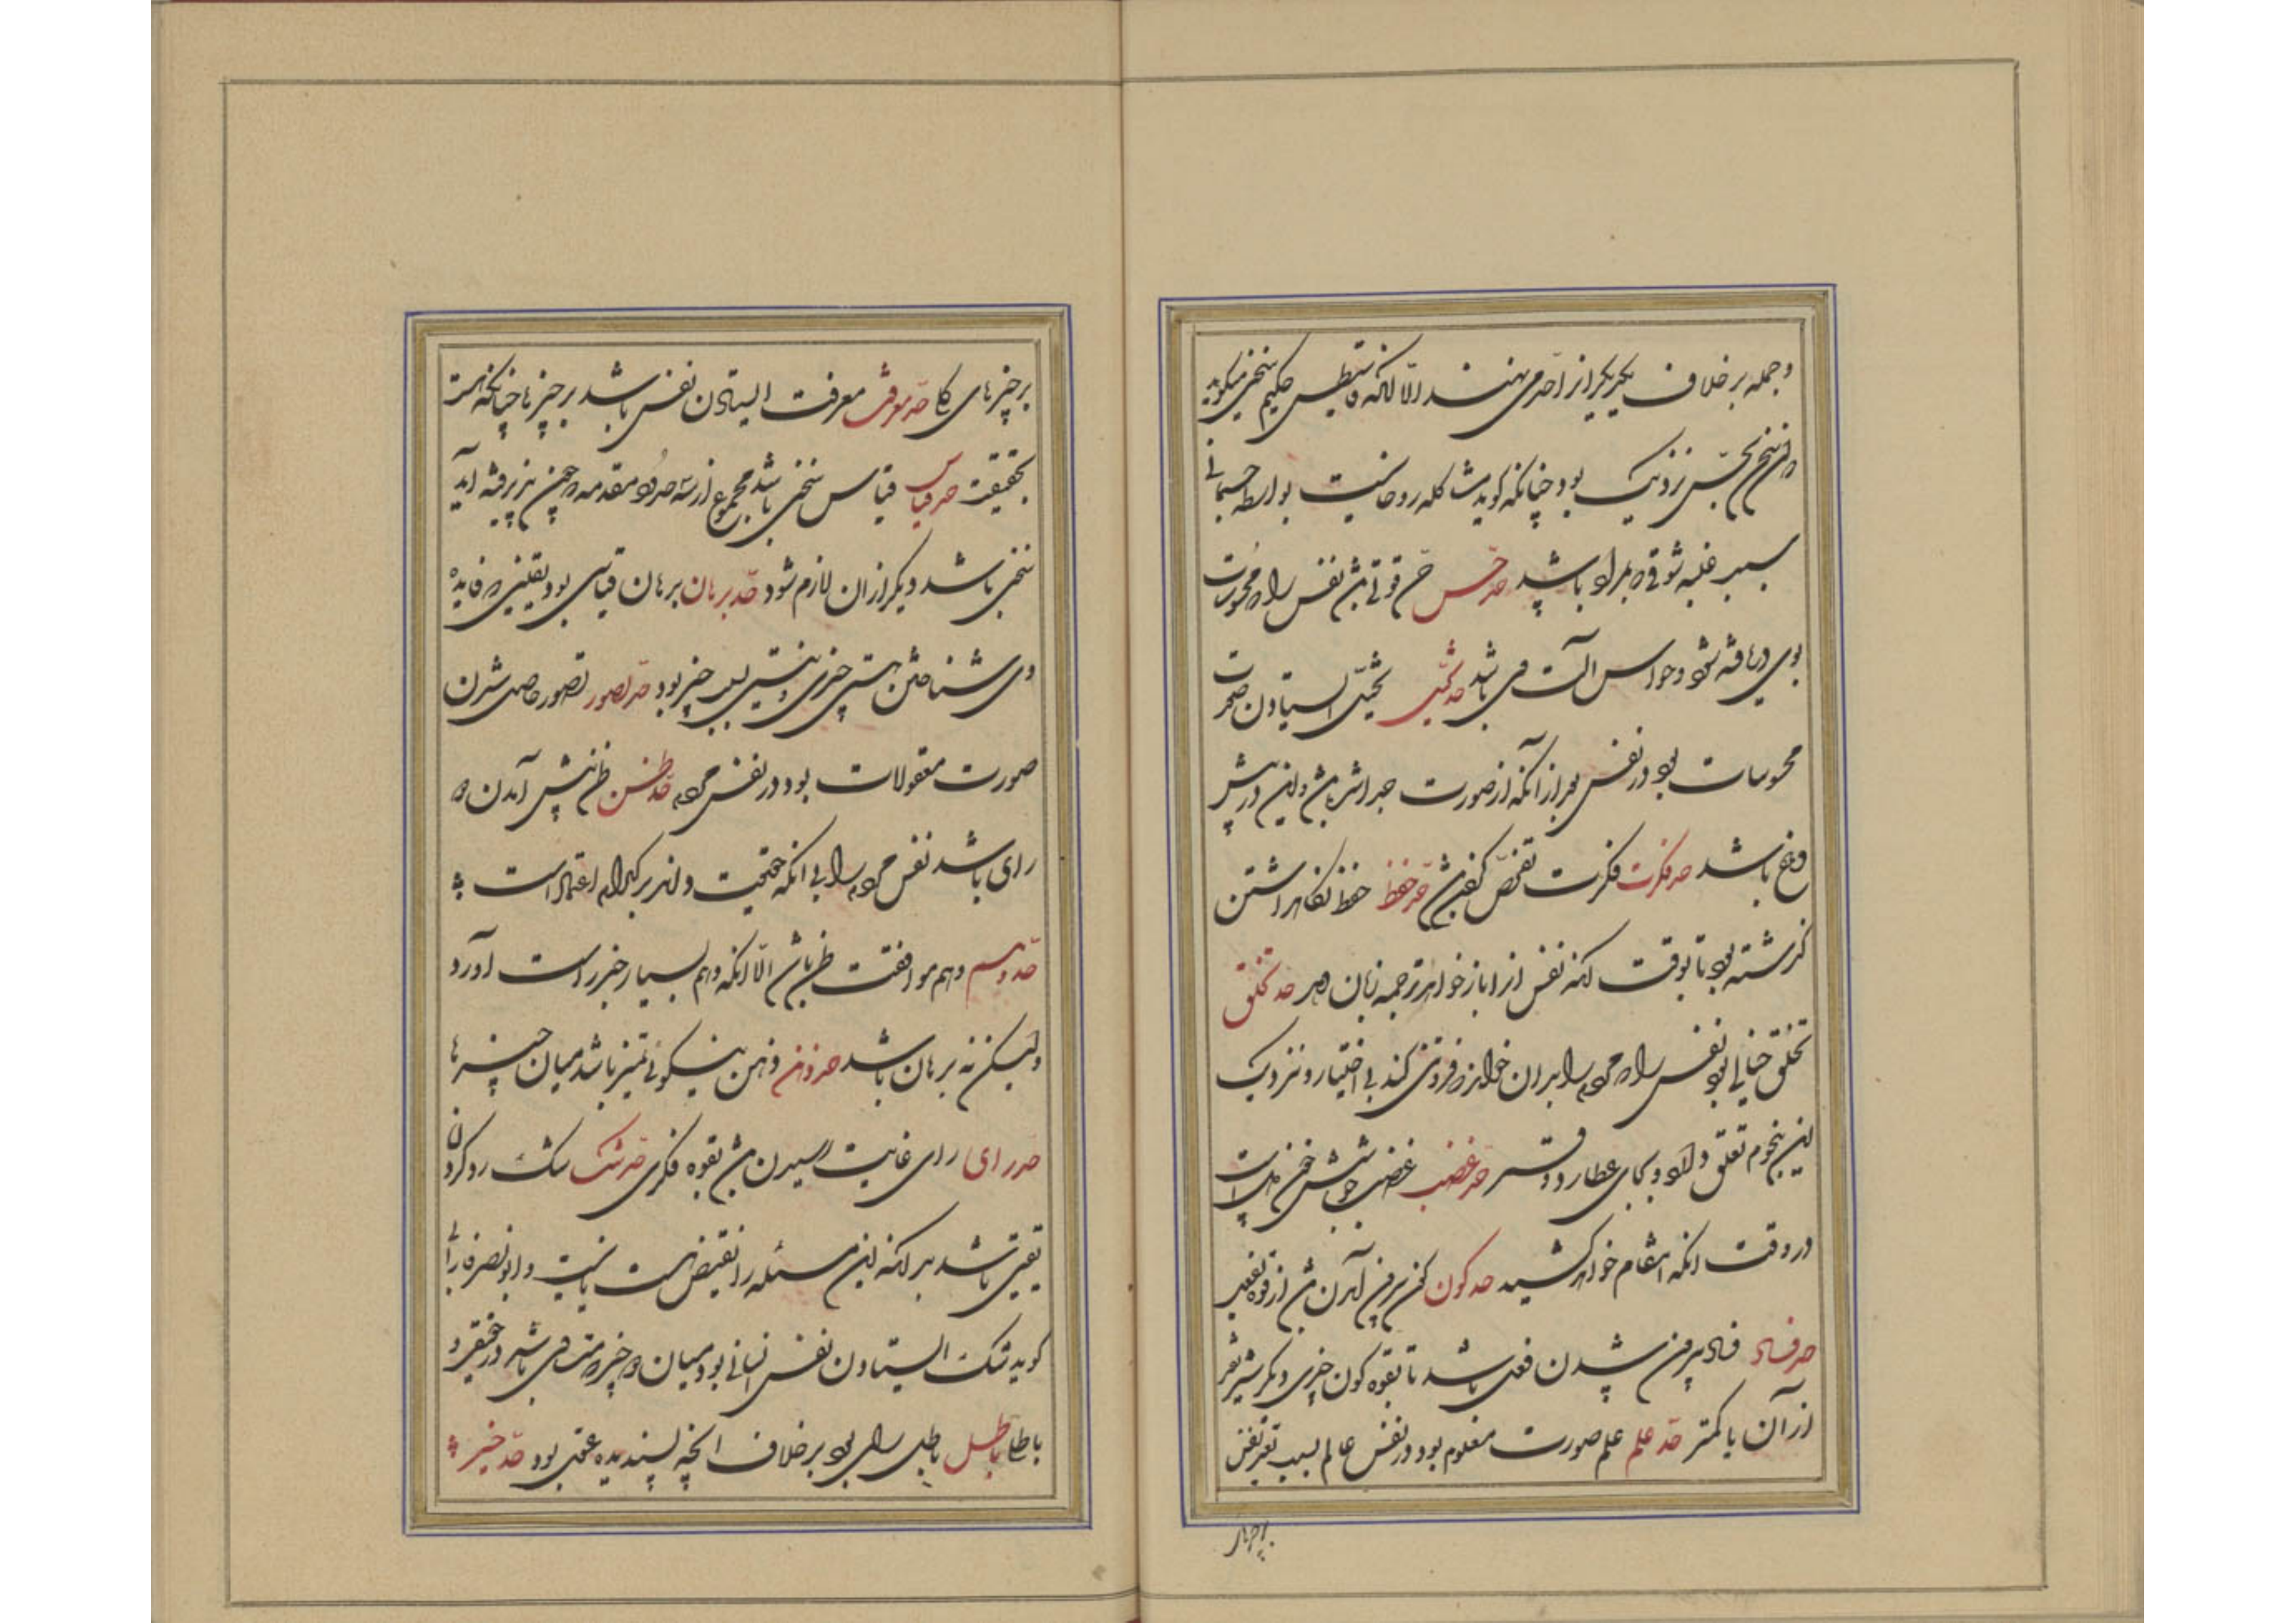 و جمله برخلاف یکدیگر از احد می نهند الا آنکه حکیم سخنی میگوید
سخن بحس نزدیک بود چنانکه گوید مشاکله روحانیست بواسطه جسمانی
بسبب غلبه شوق باشد حد حس حس قوتی باشد نفس را که محسوسات
بوی دریافته شود و حواس آلت وی باشد حد تخیل تخیل ایستادن صورت
محسوسات بود در نفس بعد از آنکه از صورت جدا شده باشد و این در پیش
دماغ باشد حد فکرت فکرت تفحص کردن باشد حد حفظ حفظ نگاه داشتن
گذشته بود تا بوقت آنکه نفس از او باز خواهد ترجمه زبان دهد حد تخلق
تخلق حالی بود نفس را که مردم را بدان خواند فروتنی کند بی اختیار و نزدیک
این نجوم تعلق دارد و بجای عطارد و قمر حد غضب غضب جوشش خون دل است
در وقت آنکه انتقام خواهد کشید حد کون کون بیرون آمدن باشد از قوه بفعل
حد فساد فساد بیرون شدن فعل باشد تا بقوه کون چیزی دیگر
از آن یا کمتر حد علم علم صورت معلوم بود در نفس عالم بسبب
بر چیزهای
بر چیزهای کلی حد معرفت معرفت ایستادن نفس باشد بر چیزها چنانکه هست
بحقیقت حد قیاس قیاس سخنی باشد مجموع از مقدمه که چون پذیرفته آید
سخنی باشد دیگر از آن لازم شود حد برهان برهان قیاسی بود یقینی که فایده
وی شناختن هستی چیزی و نیستی چیز بود حد تصور تصور حاصل شدن
صورت معقولات بود در نفس مردم حد ظن ظن پیش آمدن
رای باشد نفس مردم را بی آنکه اعتماد است
حد وهم وهم موافقت ظن باشد الا آنکه وهم بسیار خبر راست آورد
ولیکن نه برهان باشد حد ذهن ذهن نیکوئی تمیز باشد میان چیزها
حد رای رای غایت رسیدن باشد بقوه فکری حد شک شک رد کردن
یقینی باشد بر آنکه این مسئله را نقیض هست یا نیست و ابو نصر فارابی
گوید شک ایستادن نفس انسانی بود میان دو چیز در حقیقی و
باطل باطل باطل رای بود برخلاف آنچه پسندیده عقل بود حد خیر